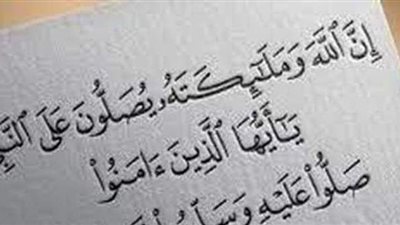 إِنَّ ٱللَّهَ وَمَلَـٰٓئِكَتَهُۥ يُصَلُّونَ عَلَى
يَـٰٓأَيُّهَا ٱلَّذِينَ ءَامَنُوا۟
صَلُّوا۟ عَلَيْهِ